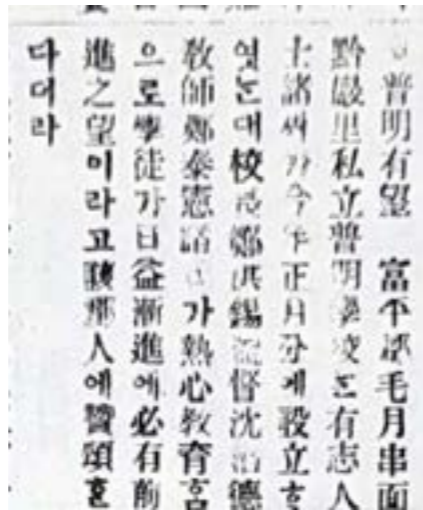 普明有望 富平郡毛月串面
黔巖里私立普明學校는有志人
士諸씨가今年正月分에設立
엿는대校長鄭洪錫 督沈 德
敎師鄭泰憲諸 가熱心敎育
으로學徒가日益漸進에必有前
進之望이라고 人에贊頌
다더라